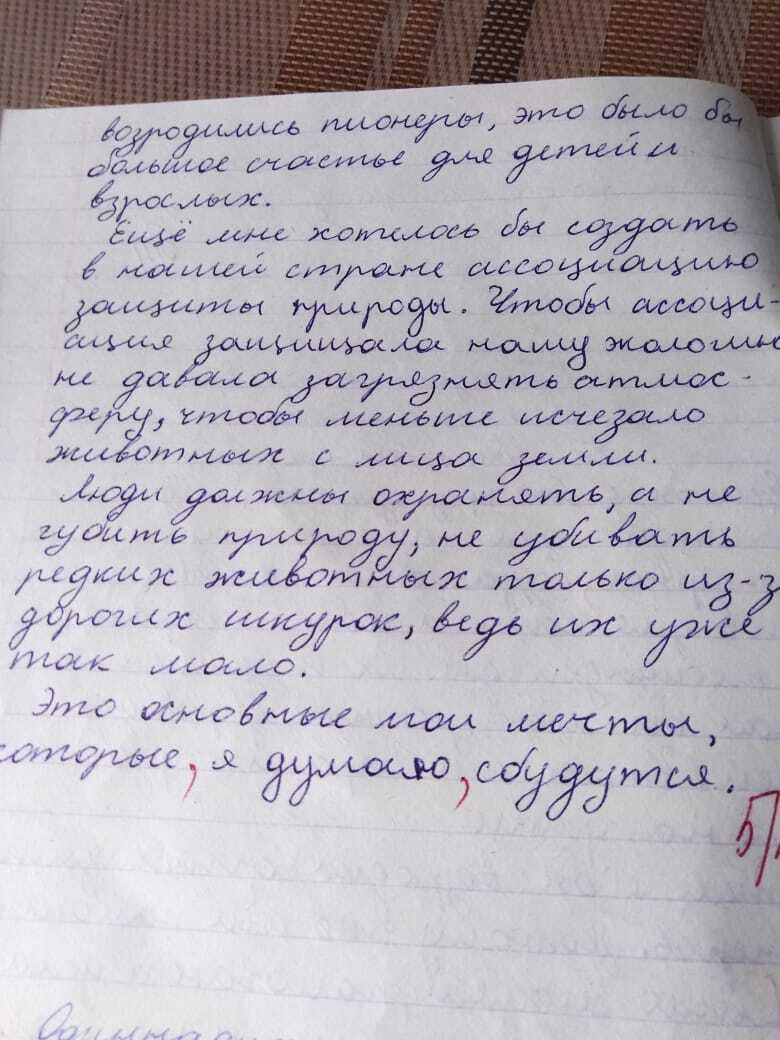 возродились пионеры, это было бы
большое счастье для детей и
взрослых.
Ещё мне хотелось бы создать
в нашей стране ассоциацию
защиты природы. Чтобы ассоци-
ация защищала нашу экологию
не давала загрязнять атмос-
феру, чтобы меньше исчезало
животных с лица земли.
Люди должны охранять, а не
губить природу, не убивать
редких животных только из-з
дорогих шкурок, ведь их уже
так мало.
Это основные мои мечты,
которые, я думаю, сбудутся.
5/